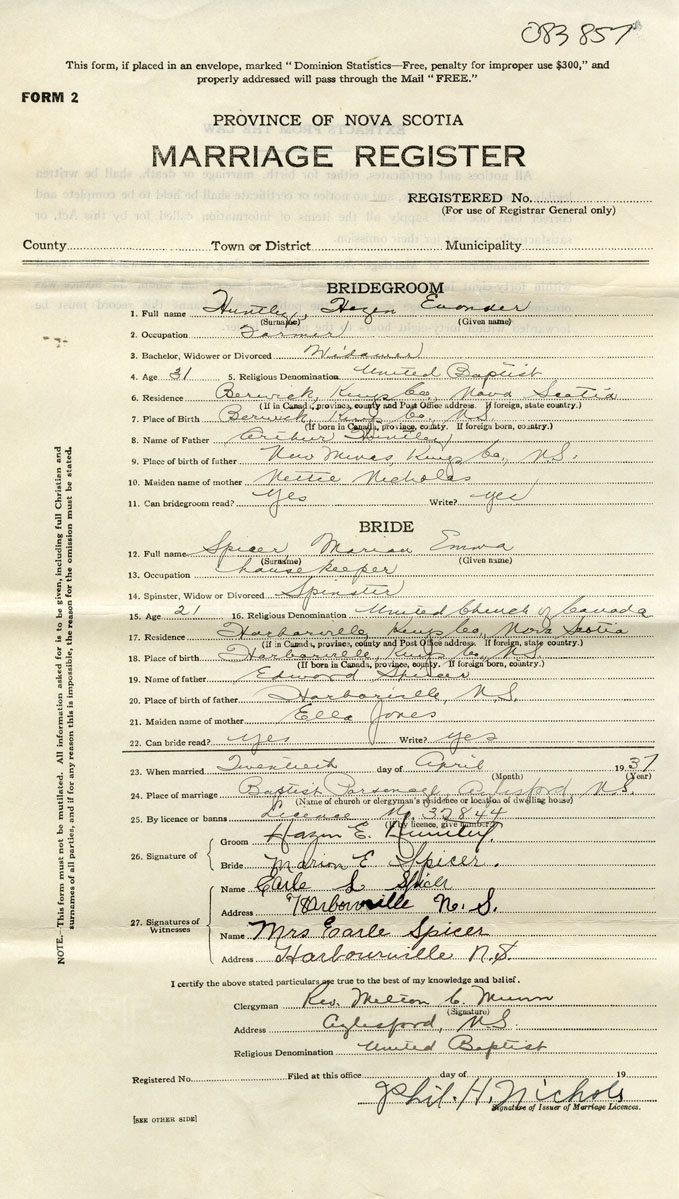 083857
This form, if placed in an envelope, marked "Dominion Statistics—Free, penalty for improper use $300," and
properly addressed will pass through the Mail "FREE."
FORM 2
PROVINCE OF NOVA SCOTIA
MARRIAGE REGISTER
REGISTERED No.
(For use of Registrar General only)
County Town or District Municipality
BRIDEGROOM
1. Full name Huntley, Hazen Evonder
(Surname) (Given name)
2. Occupation Farmer
3. Bachelor, Widower or Divorced Widower
4. Age 31 5. Religious Denomination United Baptist
6. Residence Berwick, Kings Co., Nova Scotia
(If in Canada, province, county and Post Office address. If foreign, state country.)
7. Place of Birth Berwick, Kings Co., N.S.
(If born in Canada, province, county. If foreign born, country.)
8. Name of Father Arthur Huntley
9. Place of birth of father New Minas, Kings Co., N.S.
10. Maiden name of mother Nettie Nicholas
11. Can bridegroom read? Yes Write? Yes
BRIDE
12. Full name Spicer, Marion Emma
(Surname) (Given name)
13. Occupation housekeeper
14. Spinster, Widow or Divorced Spinster
15. Age 21 16. Religious Denomination United Church of Canada
17. Residence Harborville, Kings Co., Nova Scotia
(If in Canada, province, county and Post Office address. If foreign, state country.)
18. Place of birth Harborville, Kings Co., N.S.
(If born in Canada, province, county. If foreign born, country.)
19. Name of father Edward Spicer
20. Place of birth of father Harborville, N.S.
21. Maiden name of mother Ella Jones
22. Can bride read? Yes Write? Yes
23. When married Twentieth day of April 1937
(Month) (Year)
24. Place of marriage Baptist Parsonage, Aylesford N.S.
(Name of church or clergyman's residence or location of dwelling house)
25. By licence or banns Licence No. 32844
(If by licence, give number)
26. Signature of
Groom Hazen E. Huntley
Bride Marion E Spicer.
27. Signatures of Witnesses
Name Earle L Spicer
Address Harbourville N.S.
Name Mrs Earle Spicer
Address Harbourville N.S
I certify the above stated particulars are true to the best of my knowledge and belief.
Clergyman Rev. Melton C. Munn
(Signature)
Address Aylesford, N.S.
Religious Denomination United Baptist
Registered No. Filed at this office day of 19
Phil. H. Nichols
Signature of Issuer of Marriage Licences.
[SEE OTHER SIDE]
NOTE.—This form must not be mutilated. All information asked for is to be given, including full Christian and
surnames of all parties, and if for any reason this is impossible, the reason for the omission must be stated.